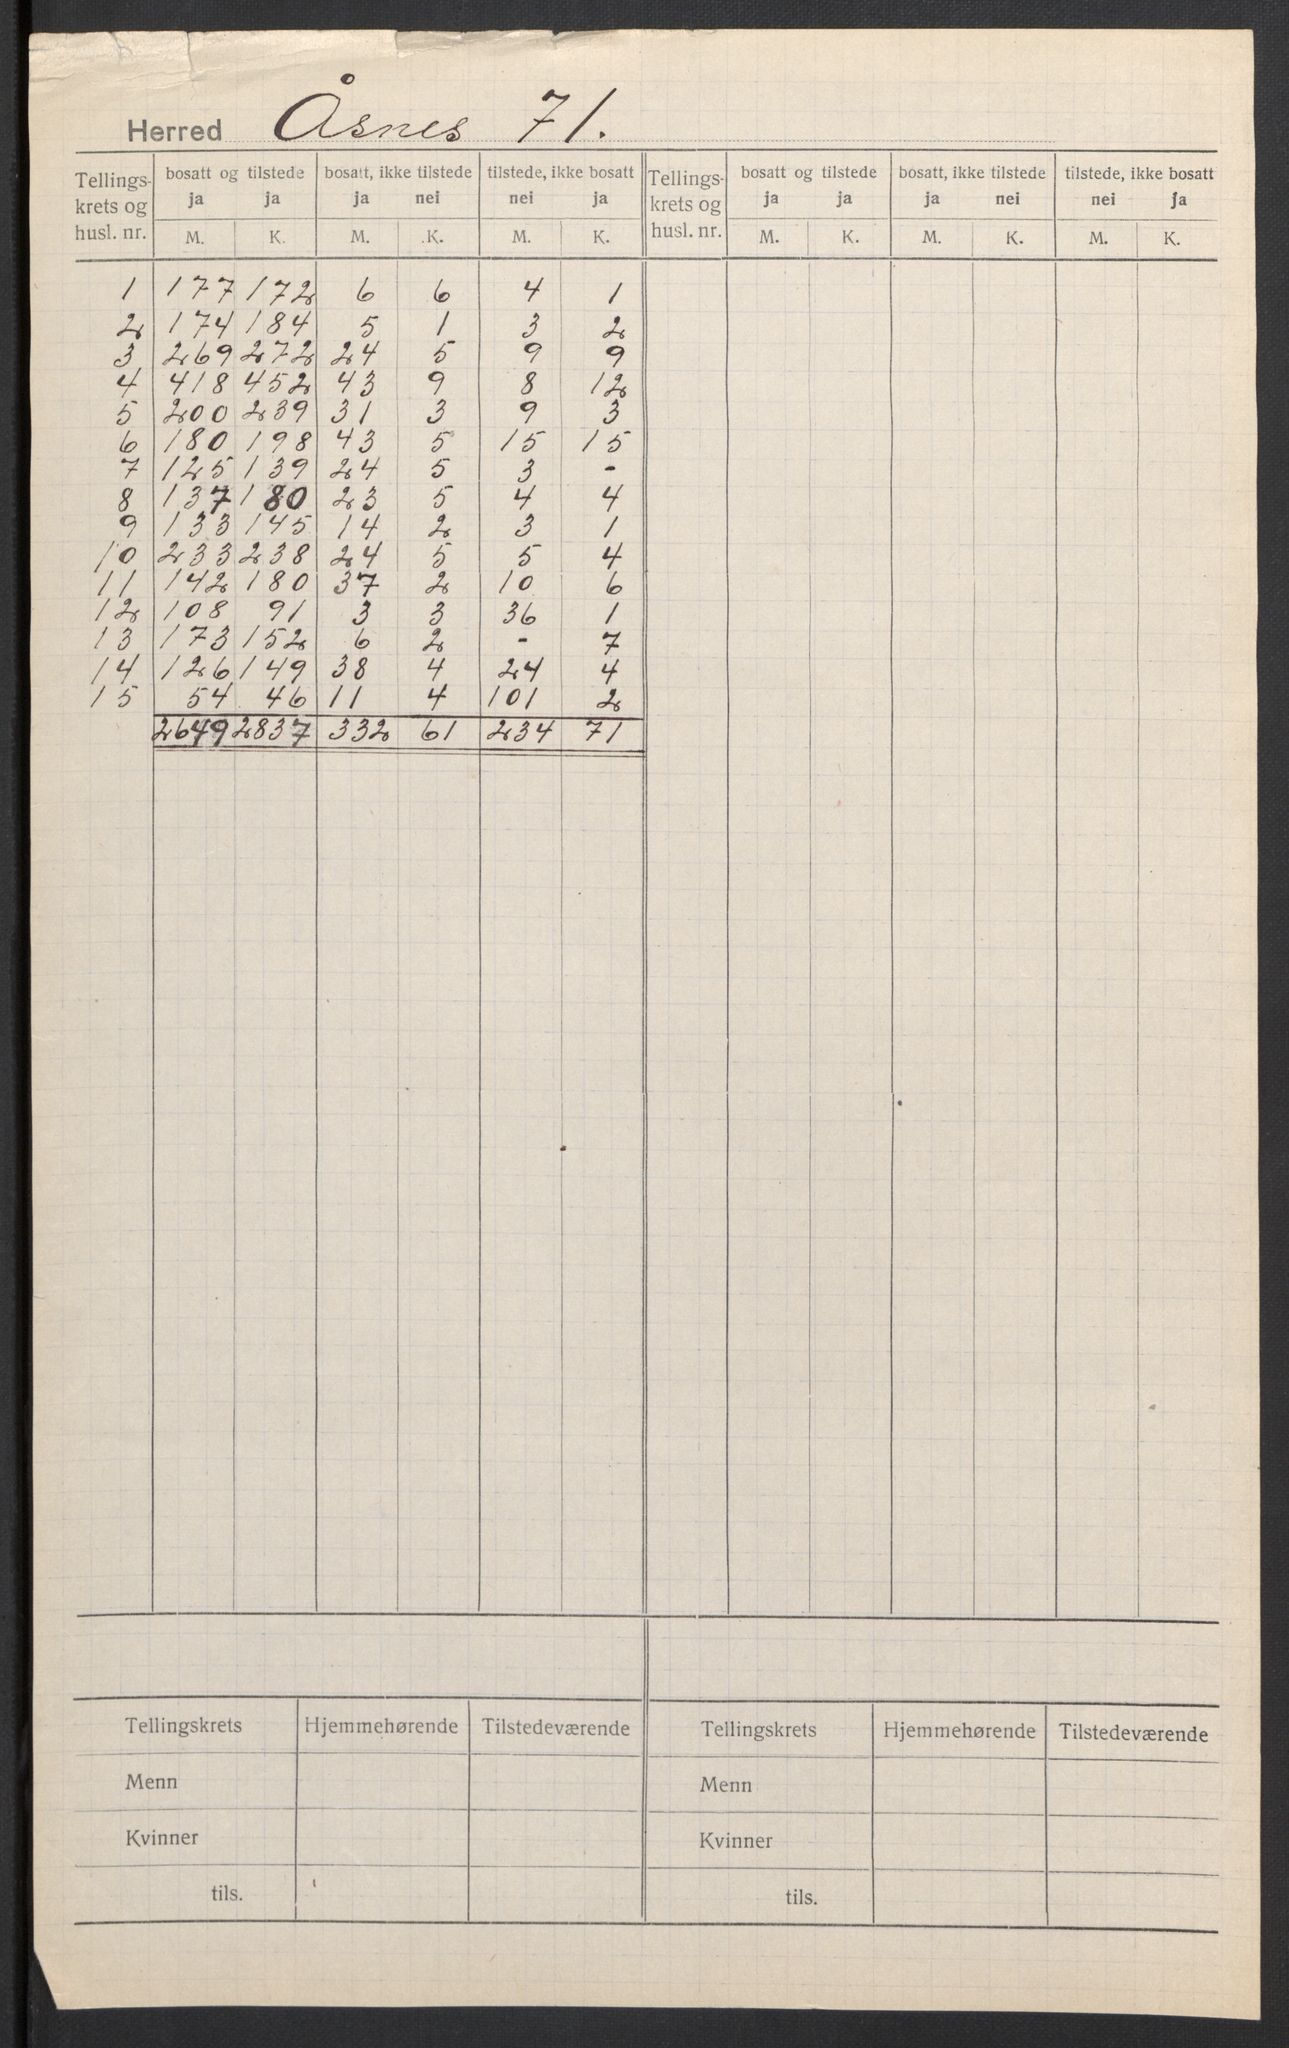 Herred Åsnes 71.
Tellings- krets og husl. nr. | bosatt og tilstede | bosatt, ikke tilstede | tilstede, ikke bosatt | Tellings- krets og husl. nr. | bosatt og tilstede | bosatt, ikke tilstede | tilstede, ikke bosatt
ja ja ja nei nei ja ja ja ja nei nei ja
M. K. M. K. M. K. M. K. M. K. M. K.
1 177 172 6 6 4 1
2 174 184 5 1 3 2
3 269 272 24 5 9 9
4 418 452 43 9 8 12
5 200 239 31 3 9 3
6 180 198 43 5 15 15
7 125 139 24 5 3 -
8 137 180 23 5 4 4
9 133 145 14 2 3 1
10 233 238 24 5 5 4
11 142 180 37 2 10 6
12 108 91 3 3 36 1
13 173 152 6 2 - 7
14 126 149 38 4 24 4
15 54 46 11 4 101 2
2649 2837 332 61 234 71
Tellingskrets Hjemmehørende Tilstedeværende Tellingskrets Hjemmehørende Tilstedeværende
Menn Menn
Kvinner Kvinner
tils. tils.